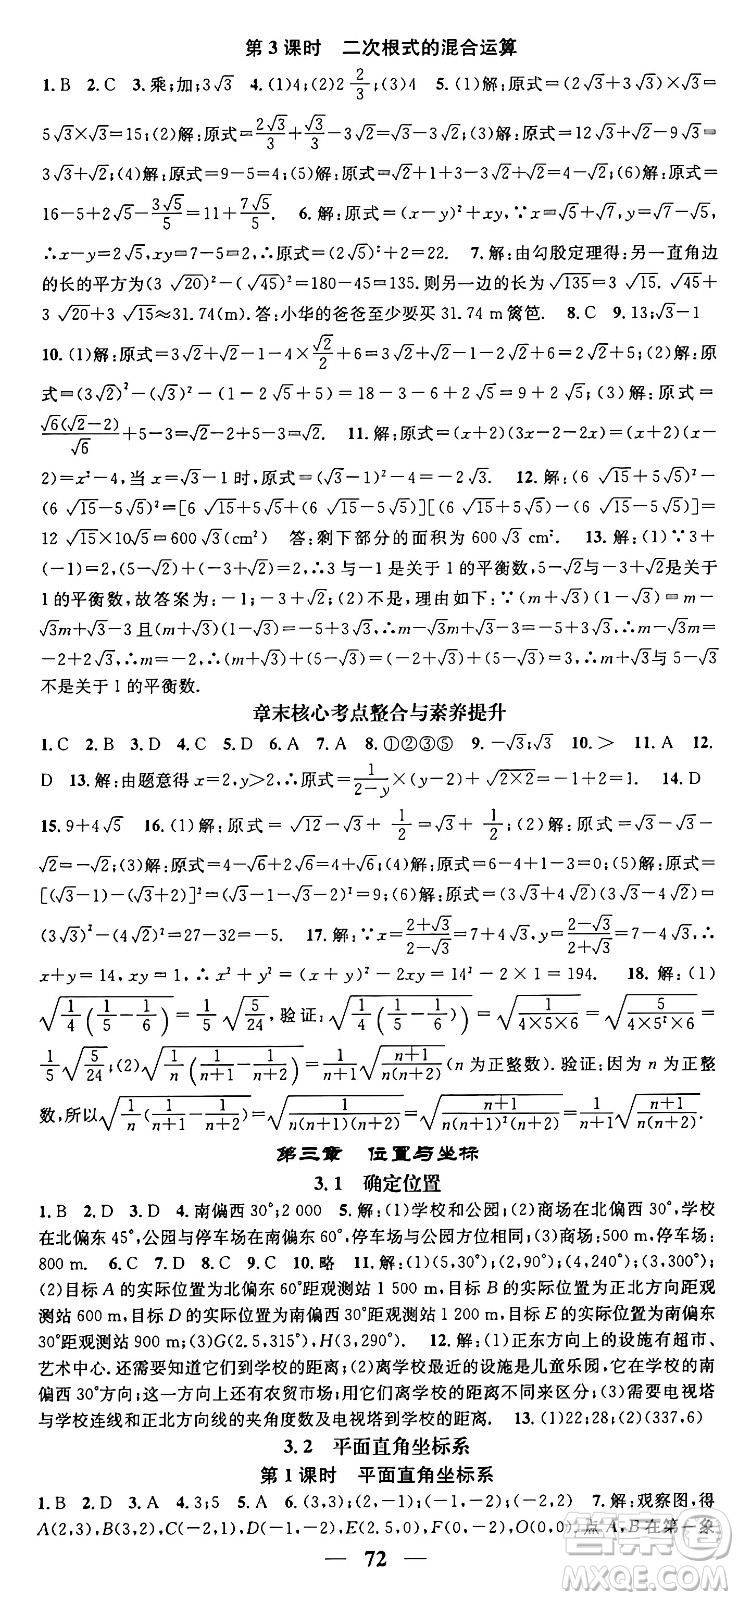 第3课时　二次根式的混合运算
1.B　2.C　3.乘;加;3√3　4.(1)4;(2)2√(2/3);(3)4　5.(1)解:原式=(2√3+3√3)×√3=
5√3×√3=15;(2)解:原式=2√3/3+√3/3-3√2=√3-3√2;(3)解:原式=12√3×
3√3+√2;(4)解:原式=9-5=4;(5)解:原式=
16-5+2√5-3√5/5=11+7√5/5.　6.解:原式=(x-y)²+xy,
∴x-y=2√5,xy=7-5=2,∴原式=(2√5)²+2=22.　7.解:由勾股定理得:另一直角边
的长的平方为(3√20)²-(√45)²=180-45=135.则另一边的长为√135=3√15.√45+
3√20+3√15≈31.74(m).答:小华的爸爸至少要买31.74 m篱笆.　8.C　9.13;√3-1
10.(1)解:原式=3√2+√2-1-4×√2/2+6=2√2+5;(2)解:原
式=(3√2)²-(√3)²-(5-2√5+1)=18-3-6+2√5=9+2√5;(3)解:原式=
√6(√2-2)/√6+5-3=√2-2+5-3=√2.　11.解:原式=(x+2)(3x-2-2x)=(x+2)(x-
2)=x²-4,当x=√3-1时,原式=(√3-1)²-4=-2√3.　12.解:(6√15+5√5)²-
(6√15-5√5)²=[6√15+5√5+(6√15-5√5)][(6√15+5√5)-(6√15-5√5)]=
12√15×10√5=600√3(cm²)　答:剩下部分的面积为600√3 cm².　13.解:(1)∵3+
(-1)=2,(5-√2)+(-3+√2)=2,∴3与-1是关于1的平衡数,5-√2与-3+√2是关于
1的平衡数,故答案为:-1;-3+√2;(2)不是.理由如下:∵(m+√3)×(1-√3)=m-
√3m+√3-3且(m+√3)(1-√3)=-5+3√3,∴m-√3m+√3-3=-5+3√3,∴m-√3m=
-2+2√3,即m(1-√3)=-2(1-√3),∴m=-2,∴(m+√3)+(5-√3)=3,∴-2+√3与5-√3
不是关于1的平衡数.
章末核心考点整合与素养提升
1.C　2.B　3.D　4.A　5.D　6.A　7.A　8.①②③⑤　9.-√3;√3　10.>　11.A　12.
D　13.解:由题意得x=2,y>2,∴原式=1/(2-y)×(y-2)+√(2×2)=-1+2=1.　14.D
15.9+4√5　16.(1)解:原式=√12-√3+1/2=√3+1/2;(2)解:原式=
√3-√2;(3)解:原式=6-4+1-3=0;(5)解:原式=
[(√3-1)-(√3+2)]²=(-1-2)²=9;(6)解:原式=(3√3+4√2)(3√3-4√2)=
(3√3)²-(4√2)²=27-32=-5.　17.解:∵x=(2+√3)/(2-√3)=7+4√3,y=(2-√3)/(2+√3)=7-4√3,∴
x+y=14,xy=1,∴x²+y²=(x+y)²-2xy=14²-2×1=194.　18.解:(1)
√(1/4(1/5-1/6))=1/5√(5/24),验证:√(1/4(1/5-1/6))=√(1/(4×5×6))=√(5/(4×5²×6))=
1/5√(5/24);(2)√(1/n(1/(n+1)-1/(n+2)))=1/(n+1)√((n+1)/(n(n+2)))(n为正整数).验证:因为n为正整
数,所以√(1/n(1/(n+1)-1/(n+2)))=√(1/(n(n+1)(n+2)))=√((n+1)/(n(n+1)²(n+2)))=1/(n+1)√((n+1)/(n(n+2))).
第三章　位置与坐标
3.1　确定位置
1.B　2.D　3.D　4.南偏西30°;2 000　5.解:(1)学校和公园;(2)商场在北偏西30°,学校
在北偏东45°,公园与停车场在南偏东60°,停车场与公园方位相同;(3)商场:500 m,停车场:
800 m.　6.C　7.D　8.C　9.C　10.略　11.解:(1)(5,30°);(2,90°);(4,240°);(3,300°);
(2)目标A的实际位置为北偏东60°距观测站1 500 m,目标B的实际位置为正北方向距观
测站600 m,目标D的实际位置为南偏西30°距观测站1 200 m,目标E的实际位置为南偏东
30°距观测站900 m;(3)G(2.5,315°),H(3,290°).　12.解:(1)正东方向上的设施有超市、
艺术中心.还需要知道它们到学校的距离;(2)离学校最近的设施是儿童乐园,它在学校的南
偏西30°方向;在这一方向上还有农贸市场;(3)需要电视塔
与学校连线和正北方向线的夹角度数及电视塔到学校的距离.　13.(1)22;28;(2)(337,6)
3.2　平面直角坐标系
第1课时　平面直角坐标系
1.B　2.D　3.A　4.3;5　5.A　6.(3,3);(2,-1);(-1,-2);(-2,2)　7.解:观察图,得
A(2,3),B(3,2),C(-2,1),D(-1,-2),E(2.5,0),F(0,-2),O(0,0);点A,B在第一象
72
答案圈
MXQE.COM